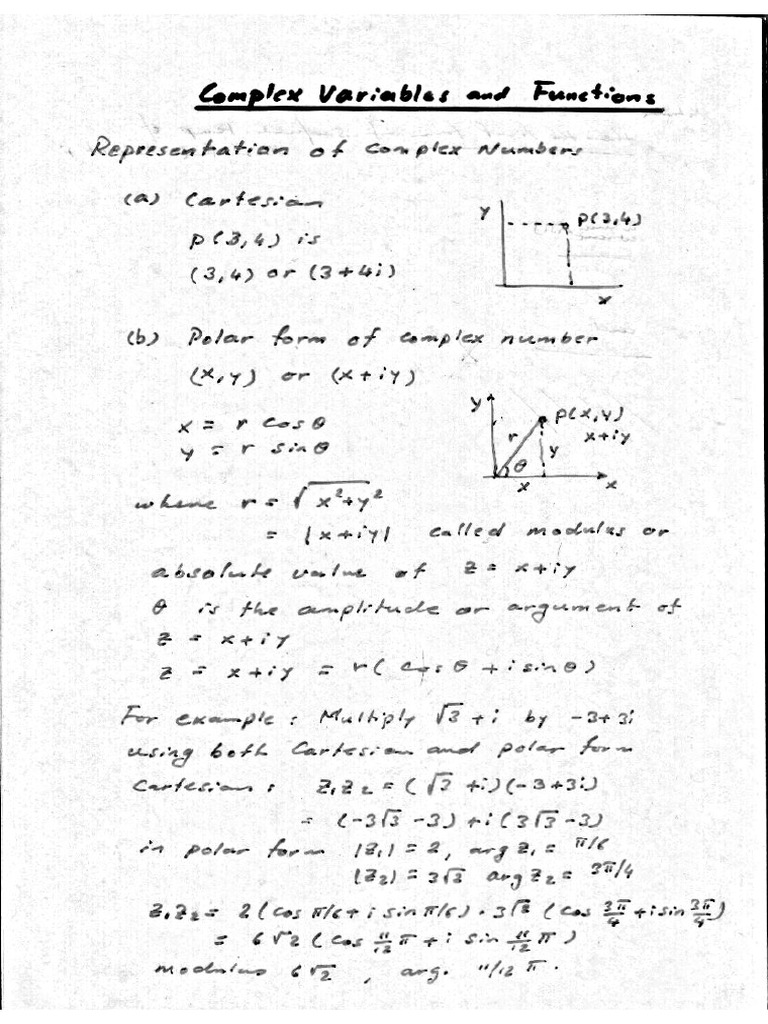 Complex Variables and Functions
Representation of Complex Numbers
(a) Cartesian
P(3,4) is
(3,4) or (3+4i)
y
P(3,4)
x
(b) Polar form of complex number
(x,y) or (x+iy)
x = r cosθ
y = r sinθ
y
P(x,y)
x+iy
r
y
θ
x
x
where r = √x²+y²
= |x+iy| called modulus or
absolute value of z = x+iy
θ is the amplitude or argument of
z = x+iy
z = x+iy = r(cosθ + i sinθ)
For example: Multiply √3+i by -3+3i
using both Cartesian and polar form
Cartesian: z₁z₂ = (√2 +i)(-3+3i)
= (-3√3 -3) +i(3√3-3)
in polar form |z₁| = 2, arg z₁ = π/6
|z₂| = 3√3 arg z₂ = 3π/4
z₁z₂ = 2(cos π/6 + i sin π/6) · 3√2 (cos 3π/4 + i sin 3π/4)
= 6√2 (cos 11/12 π + i sin 11/12 π)
modulus 6√2, arg. 11/12 π.